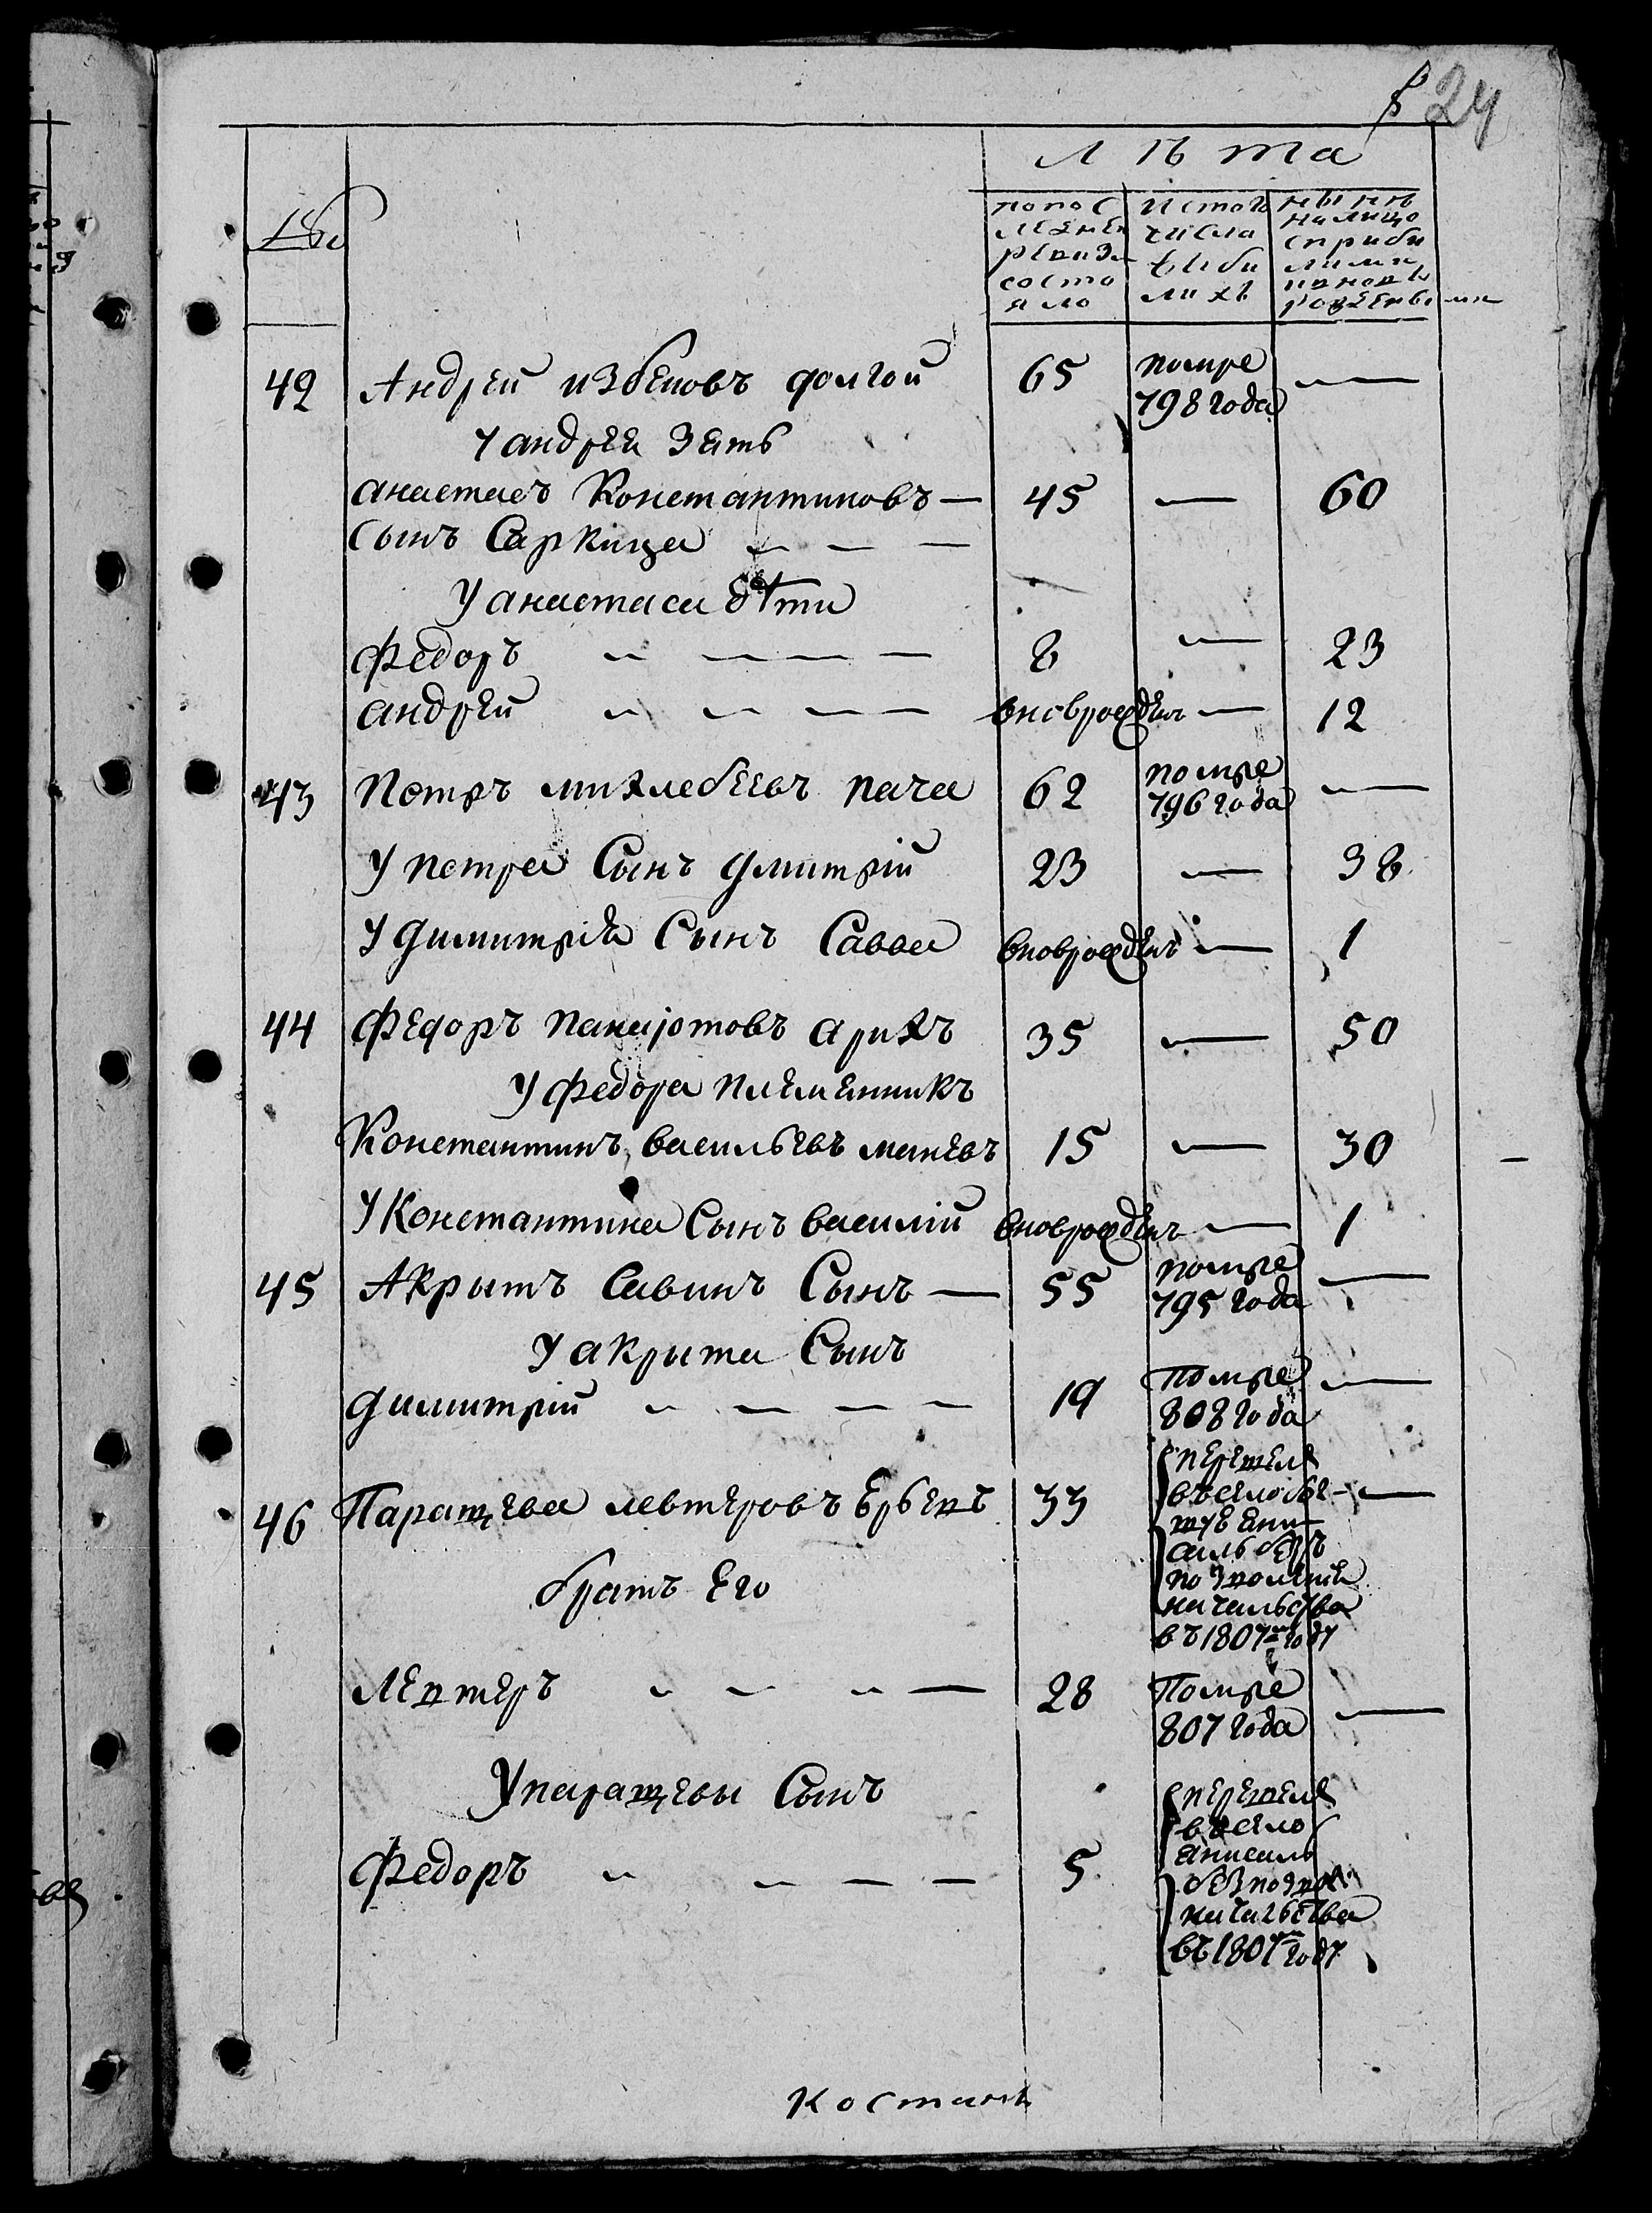 24
Лѣта
№
по пос
ледней
ревизи
состо
яло
ис того
числа
выбы
лихъ
нынѣ
на лицо
с прибы
лыми
и новъ
рожденными
42 Андрей избековъ долгой 65 помре —
798 года
У андрея зять
анастасъ Константиновъ — 45 — 60
сынъ Саркица — — —
У анастаса дѣти
Федоръ — — — — 8 — 23
андрей — — — — вновьрожденъ — 12
43 Петръ михлебеевъ пача 62 помре —
796 года
У петра Сынъ дмитрій 23 — 38
У димитрія Сынъ Савва вноврожденъ — 1
44 Федоръ панаіотовъ арихъ 35 — 50
У федора племенникъ
Константинъ васильевъ маневъ 15 — 30
У Константина Сынъ василій вноврожденъ — 1
45 Акрытъ Савинъ Сынъ — 55 помре —
795 года
У акрыта Сынъ
димитрій — — — — 19 Помре —
808 года
46 Паращева левтеровъ 33 перешел —
въ село
безъ
начальства
въ 1807м году
братъ Его
Левтеръ — — — — 28 Помре —
807 года
У паращевы Сынъ
Федоръ — — — — 5 перешел
въ село
Анисаль
без позво
начальства
въ 1807м году
Костант